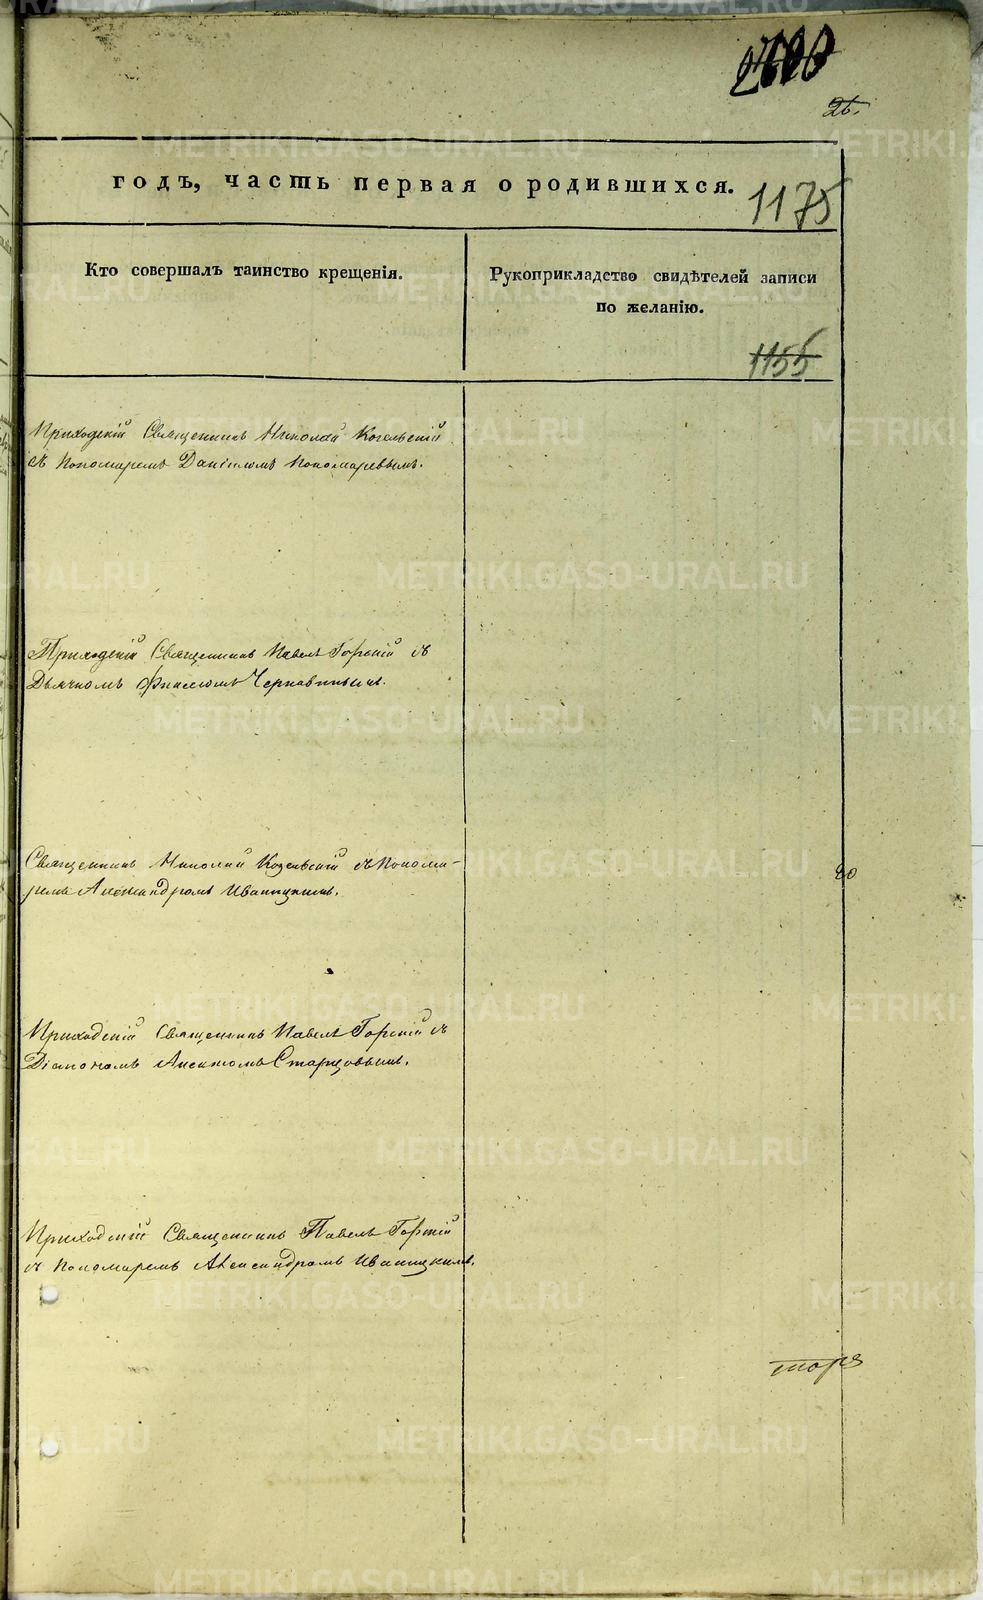 26.
годъ, часть первая о родившихся.
1175
Кто совершалъ таинство крещенія.
Рукоприкладство свидѣтелей записи
по желанію.
1155
Приходскій Священникъ Николай Козельскій
съ Пономаремъ Даніиломъ Пономаревымъ.
Приходскій Священникъ Павелъ Горскій съ
Дьячкомъ Чернавинымъ.
Священникъ Николай Козельскій съ Понома-
ремъ Александромъ Иваницкимъ.
Приходскій Священникъ Павелъ Горскій съ
Діакономъ Старцовымъ.
Приходскій Священникъ Павелъ Горскій
съ Пономаремъ Александромъ Иваницкимъ.
METRIKI.GASO-URAL.RU